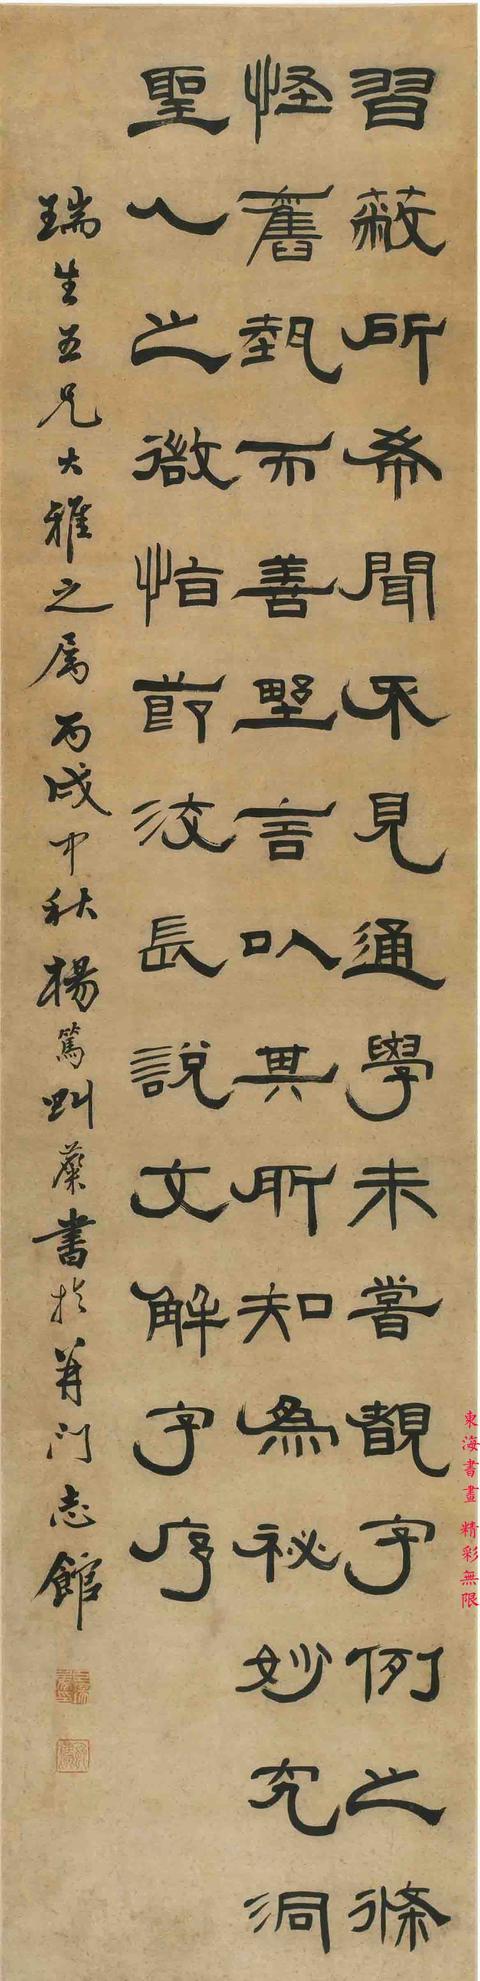 習蔽所希聞不見通學未嘗覩字例之條
怪舊埶而善野言以其所知為祕妙究洞
聖人之微恉節洨長說文解字序
瑞生五兄大雅之屬丙戌中秋楊篤書於并門志館
東海書畫 精彩無限